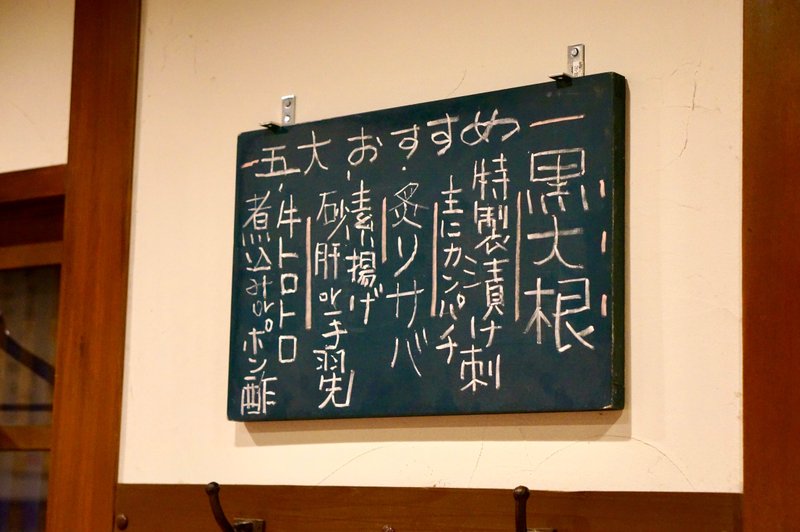 五大おすすめ
黒大根
特製漬け刺
主にカンパチ
炙りサバ
素揚げ
砂肝or手羽先
牛トロトロ
煮込みorポン酢